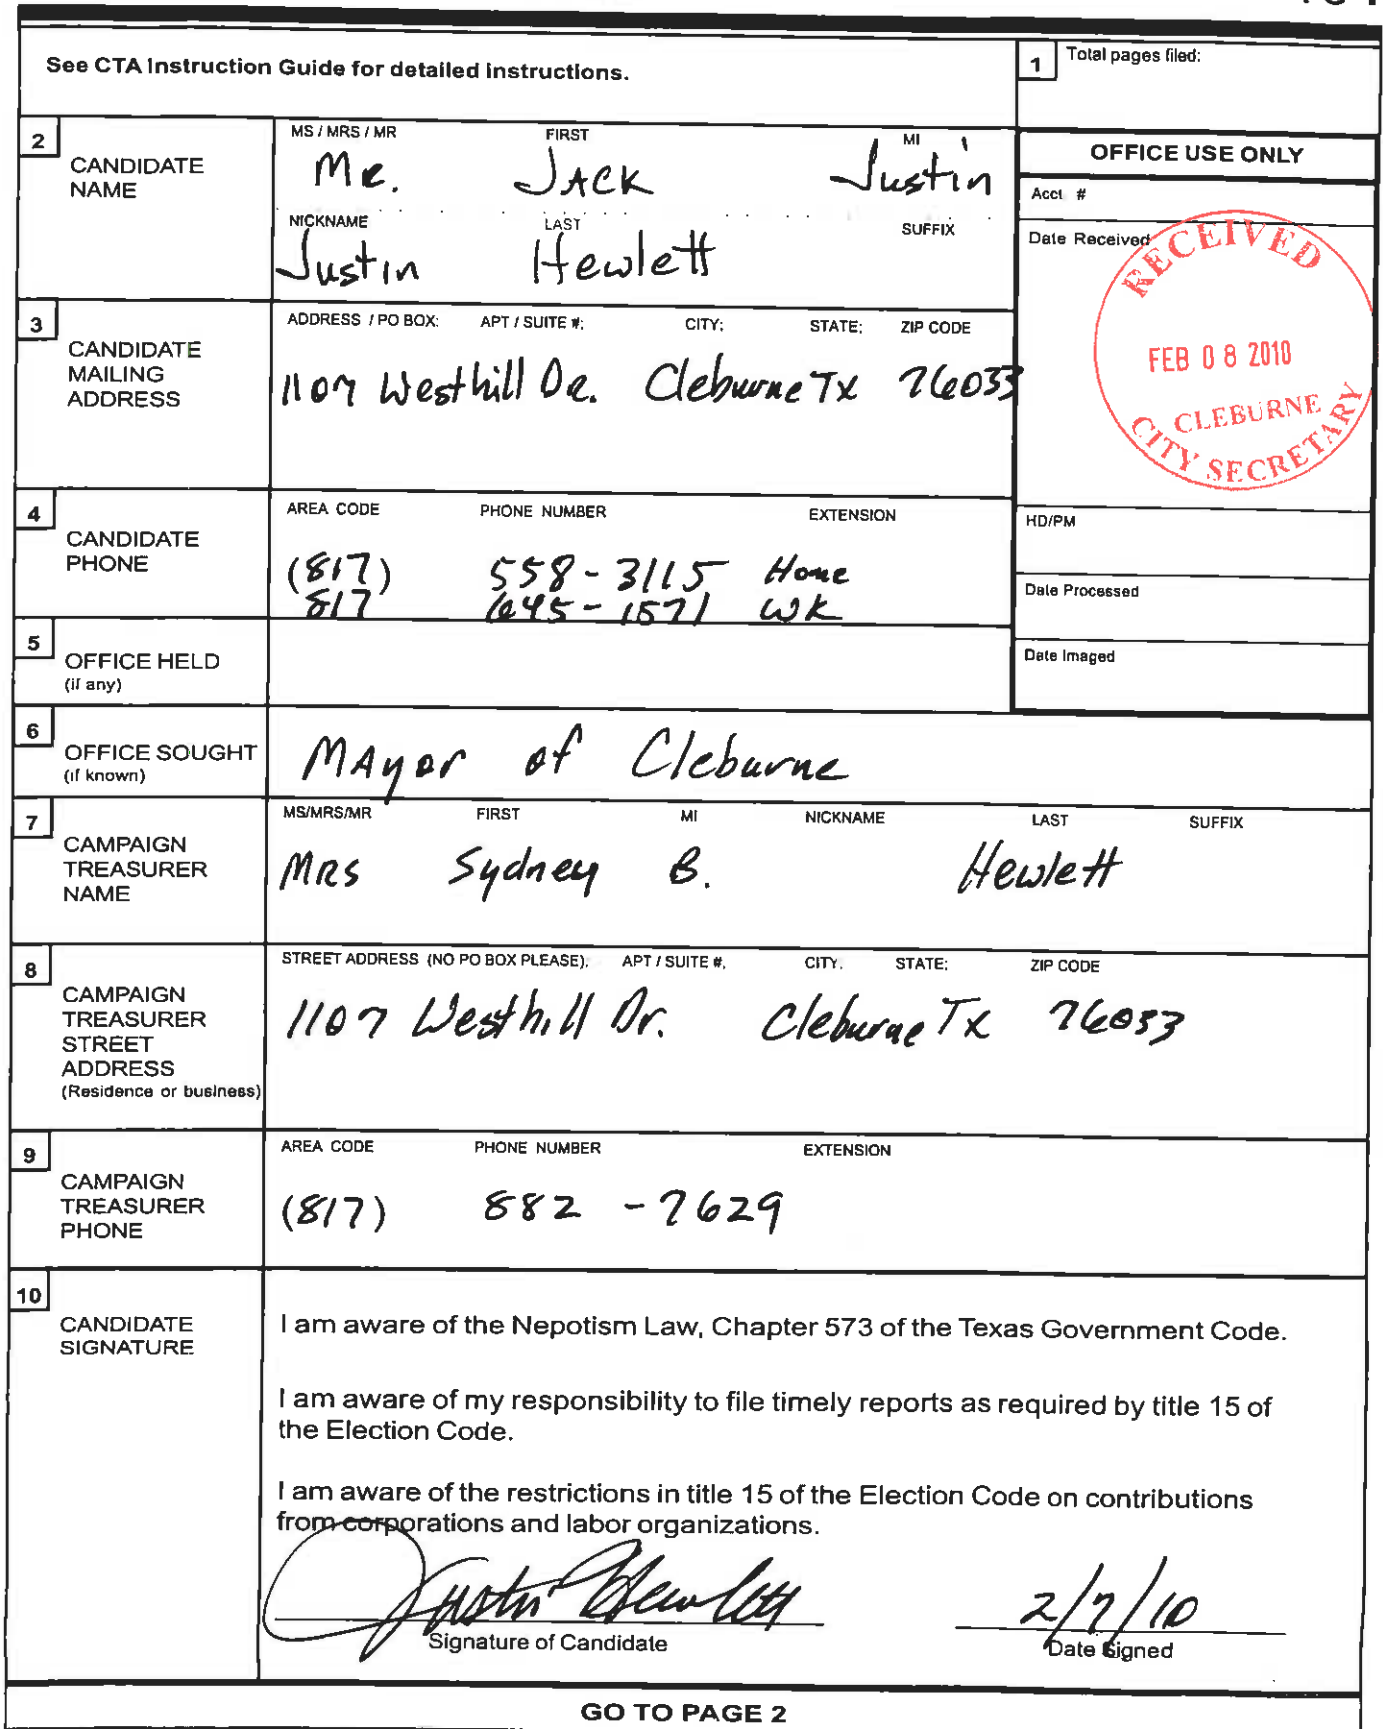 See CTA Instruction Guide for detailed instructions.
1 Total pages filed:
2 CANDIDATE NAME
MS / MRS / MR FIRST MI
Mr. JACK Justin
NICKNAME LAST SUFFIX
Justin Hewlett
OFFICE USE ONLY
Acct. #
Date Received
RECEIVED
FEB 08 2010
CLEBURNE
CITY SECRETARY
3 CANDIDATE MAILING ADDRESS
ADDRESS / PO BOX; APT / SUITE #; CITY; STATE; ZIP CODE
1107 Westhill Dr. Cleburne Tx 76033
4 CANDIDATE PHONE
AREA CODE PHONE NUMBER EXTENSION
(817) 558-3115 Home
817 645-1571 WK
HD/PM
Date Processed
Date Imaged
5 OFFICE HELD
(if any)
6 OFFICE SOUGHT
(if known)
Mayor of Cleburne
7 CAMPAIGN TREASURER NAME
MS/MRS/MR FIRST MI NICKNAME LAST SUFFIX
MRS Sydney B. Hewlett
8 CAMPAIGN TREASURER STREET ADDRESS
(Residence or business)
STREET ADDRESS (NO PO BOX PLEASE); APT / SUITE #; CITY; STATE; ZIP CODE
1107 Westhill Dr. Cleburne Tx 76033
9 CAMPAIGN TREASURER PHONE
AREA CODE PHONE NUMBER EXTENSION
(817) 882-7629
10 CANDIDATE SIGNATURE
I am aware of the Nepotism Law, Chapter 573 of the Texas Government Code.
I am aware of my responsibility to file timely reports as required by title 15 of
the Election Code.
I am aware of the restrictions in title 15 of the Election Code on contributions
from corporations and labor organizations.
Justin Hewlett 2/7/10
Signature of Candidate Date Signed
GO TO PAGE 2